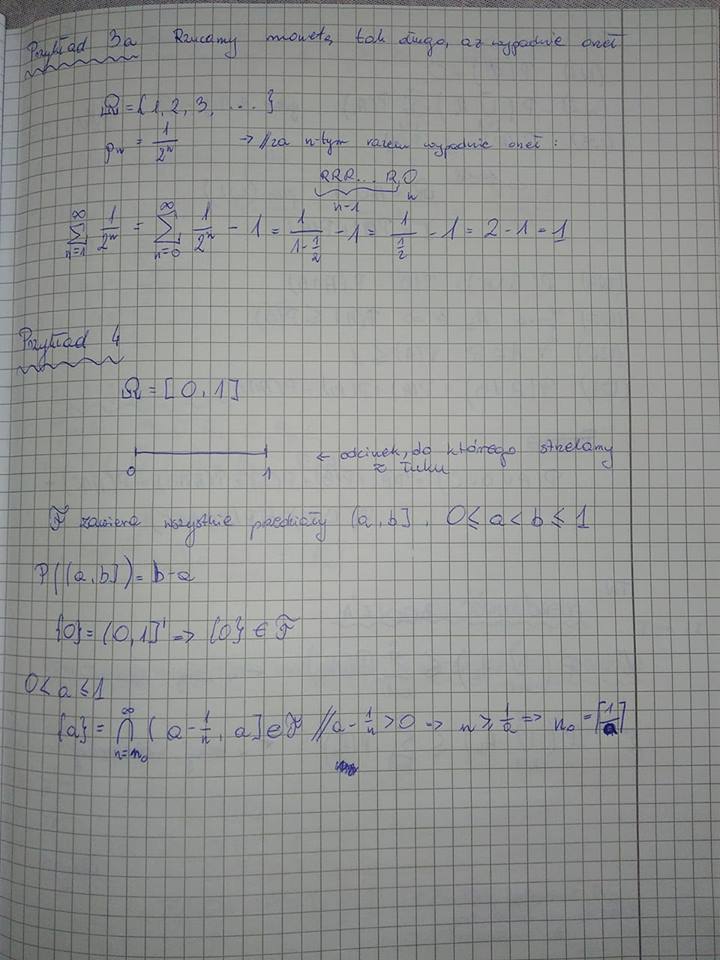 Przykład 3a Rzucamy monetą tak długo, aż wypadnie orzeł
Ω = {1, 2, 3, ...}
pₙ = 1/2ⁿ → // za n-tym razem wypadnie orzeł:
RRR...R O
n-1 n
∑_{n=1}^{∞} 1/2ⁿ = ∑_{n=0}^{∞} 1/2ⁿ - 1 = 1/(1-1/2) - 1 = 1/(1/2) - 1 = 2 - 1 = 1
Przykład 4
Ω = [0, 1]
0 1 ← odcinek, do którego strzelamy
z łuku
F zawiera wszystkie przedziały (a, b], 0 ≤ a < b ≤ 1
P((a, b]) = b-a
{0} = (0, 1]' => {0} ∈ F
0 < a ≤ 1
{a} = ⋂_{n=n₀}^{∞} (a - 1/n, a] ∈ F // a - 1/n > 0 => n ≥ 1/a => n₀ = ⌈1/a⌉